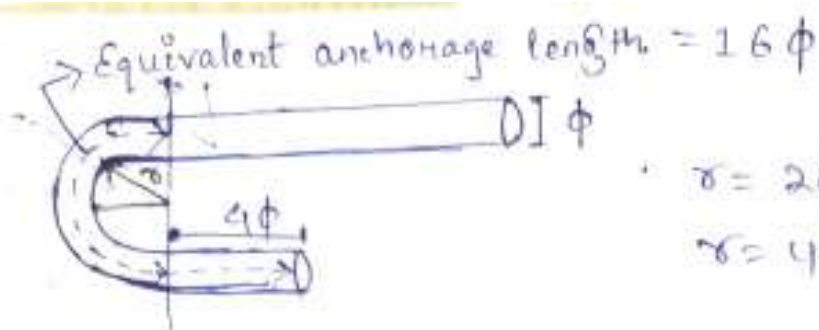 Equivalent anchorage length = 16 ϕ
ϕ
r = 2
r
4ϕ
r = 4